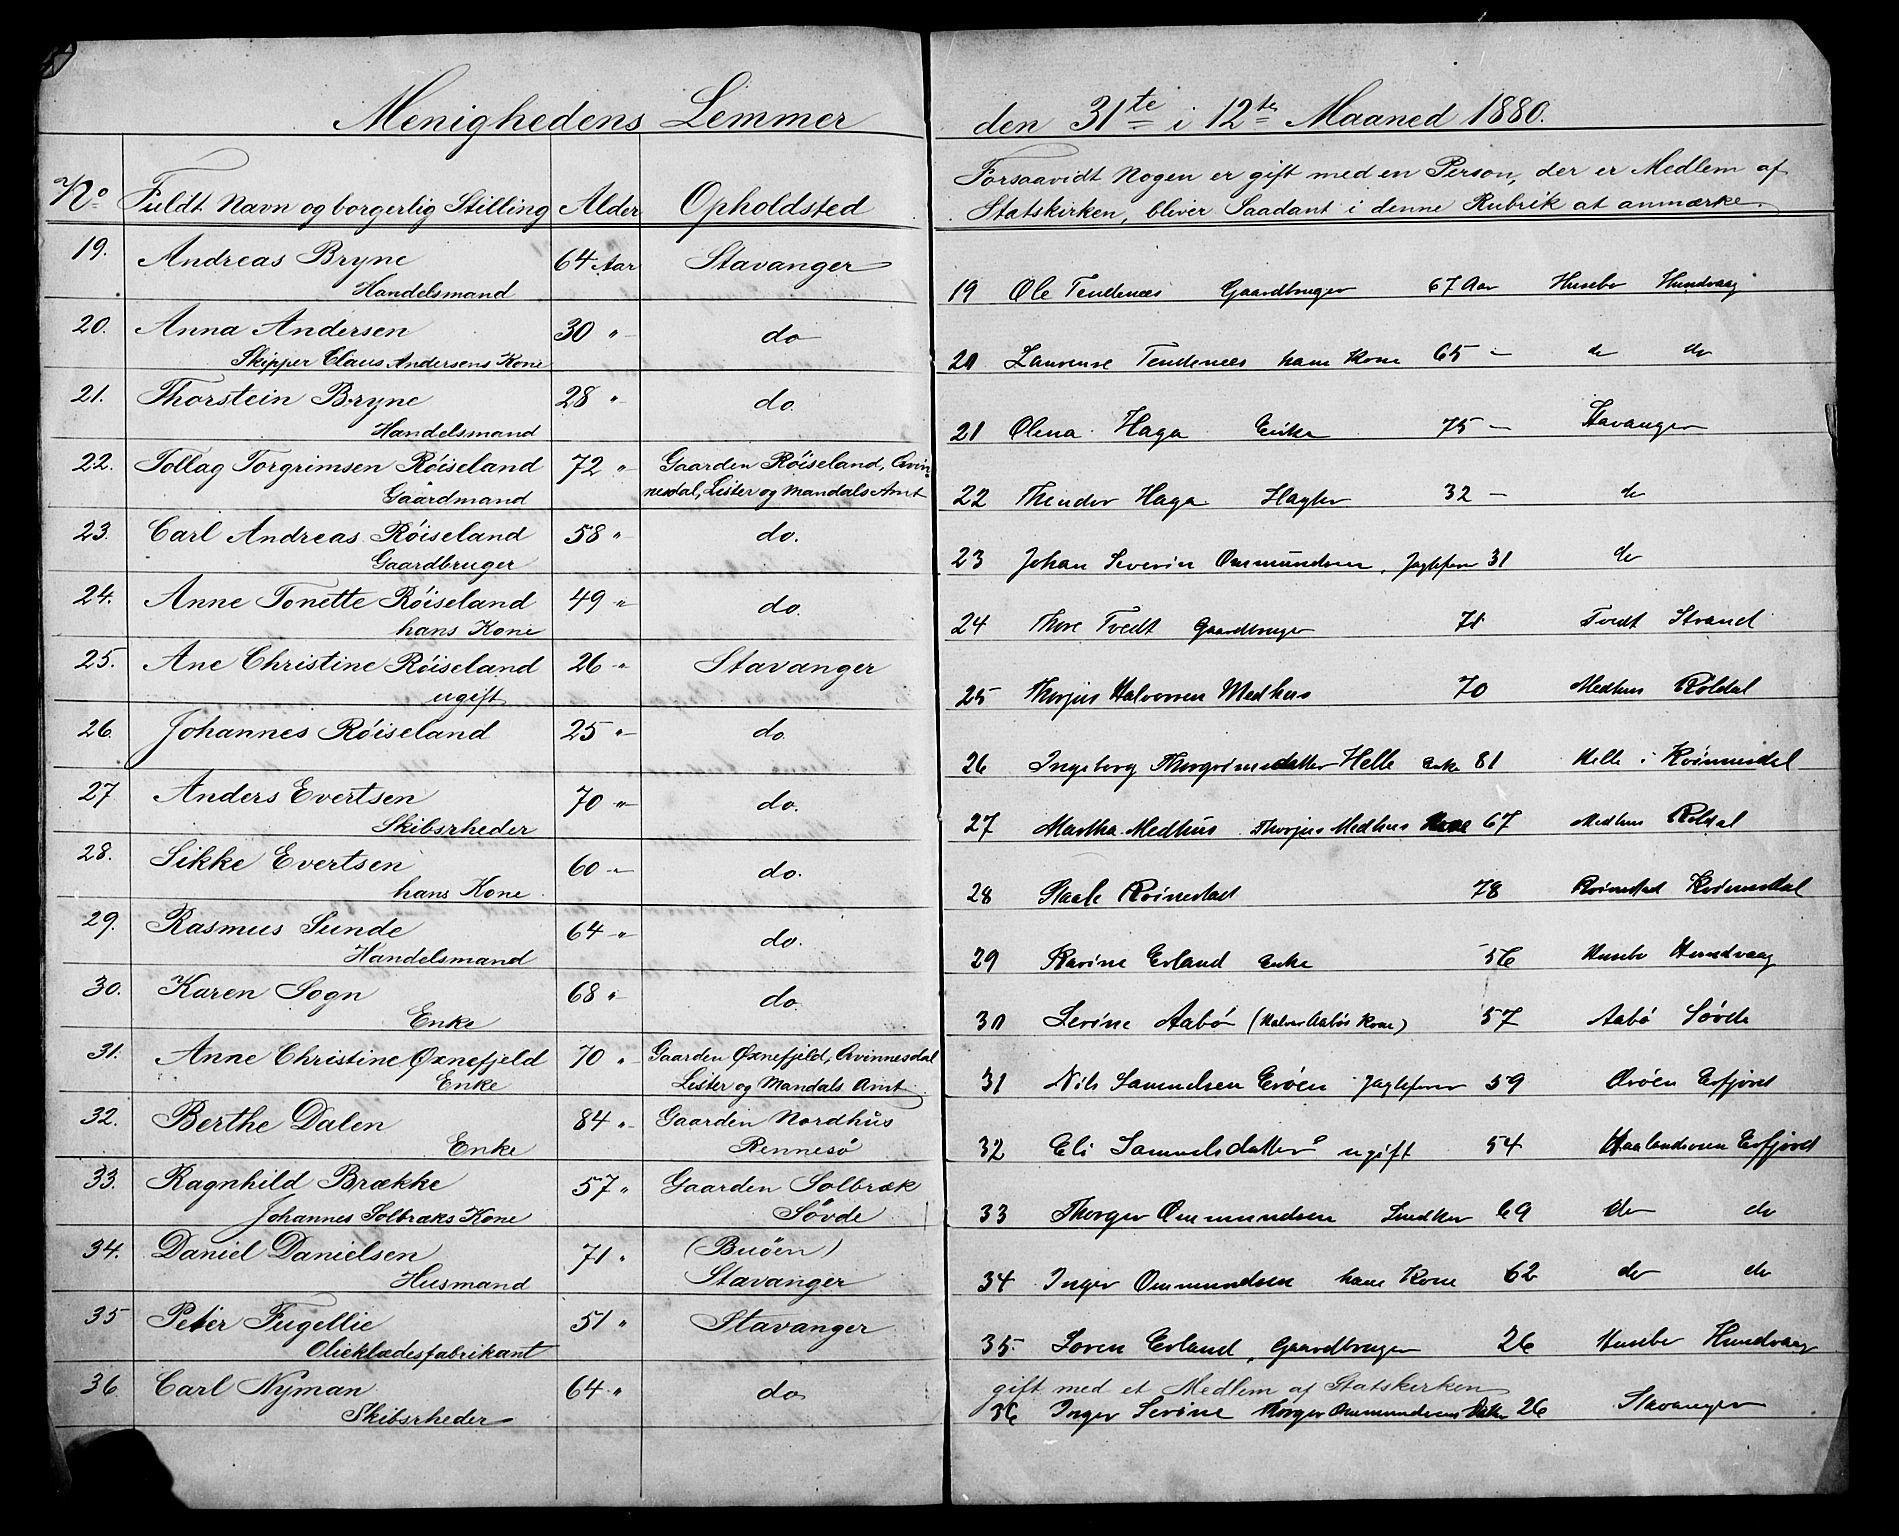 Menighedens Lemmer
No Fuldt Navn og borgerlig Stilling Alder Opholdsted
19. Andreas Bryne 64 Aar Stavanger
Handelsmand
20. Anna Andersen 30 " do
Skipper Claus Andersens Kone
21. Thorstein Bryne 28 " do.
Handelsmand
22. Tollag Torgrimsen Röiseland 72 " Gaarden Röiseland, Qvin-
Gaardmand nesdal, Lister og Mandals Amt
23. Carl Andreas Röiseland 58 " do.
Gaardbruger
24. Anne Tonette Röiseland 49 " do.
hans Kone
25. Ane Christine Röiseland 26 " Stavanger
ugift
26. Johannes Röiseland 25 " do.
27 Anders Evertsen 70 " do.
Skibsrheder
28. Sikke Evertsen 60 " do.
hans Kone.
29. Rasmus Sunde 64 " do.
Handelsmand
30. Karen Sogn 68 " do.
Enke
31. Anne Christine Øxnefjeld 70 " Gaarden Øxnefjeld, Qvinnesdal
Enke Lister og Mandals Amt.
32. Berthe Dalen 84 " Gaarden Nordhus
Enke Rennesö
33. Ragnhild Brække 57 " Gaarden Solbræk
Johannes Solbræks Kone Søvde
34. Daniel Danielsen 71 " (Buöen)
Husmand Stavanger
35 Peter Fugellie 51 " Stavanger
Olieklædesfabrikant
36. Carl Nyman 64 " do
Skibsrheder
den 31te i 12te Maaned 1880.
Forsaavidt Nogen er gift med en Person, der er Medlem af
Statskirken, bliver Saadant i denne Rubrik at anmærke.
19 Ole Tendenes Gaardbruger 67 Aar Husebø Hundvaag
20 Laurense Tendenæs hans Kone 65 " do do
21 Olena Haga Enke 75 " Stavanger
22 Theodor Haga 32 " do
23 Johan Severin Ommundsen, 31 do
24 Thore Tvedt Gaardbruger 71 Tvedt Strand
25 Thorjus Halvorsen Medhus 70 Medhus Röldal
26 Ingeborg Thorgrimsdatter Helle Enke 81 Helle i Kvinnesdal
27 Martha Medhus Thorjus Medhus Kone 67 Medhus Röldal
28 Staale Röinestad 78 Röinestad Kvinnesdal
29 Karine Erland Enke 56 Husebø Hundvaag
30 Serine Aabö (Halvor Aabös Kone) 57 Aabö Søvde
31 Nils Samuelsen 59 Erfjord
32 Eli Samuelsdatter ugift 54 Erfjord
33 Thorger Ommundsen Snedker 69 do do
34 Inger Ommundsen hans Kone 62 do do
35. Soren Erland, Gaardbruger 26 Husebø Hundvaag
gift med et Medlem af Statskirken
36 Inger Serine Thorger Ommundsens Datter 26 Stavanger